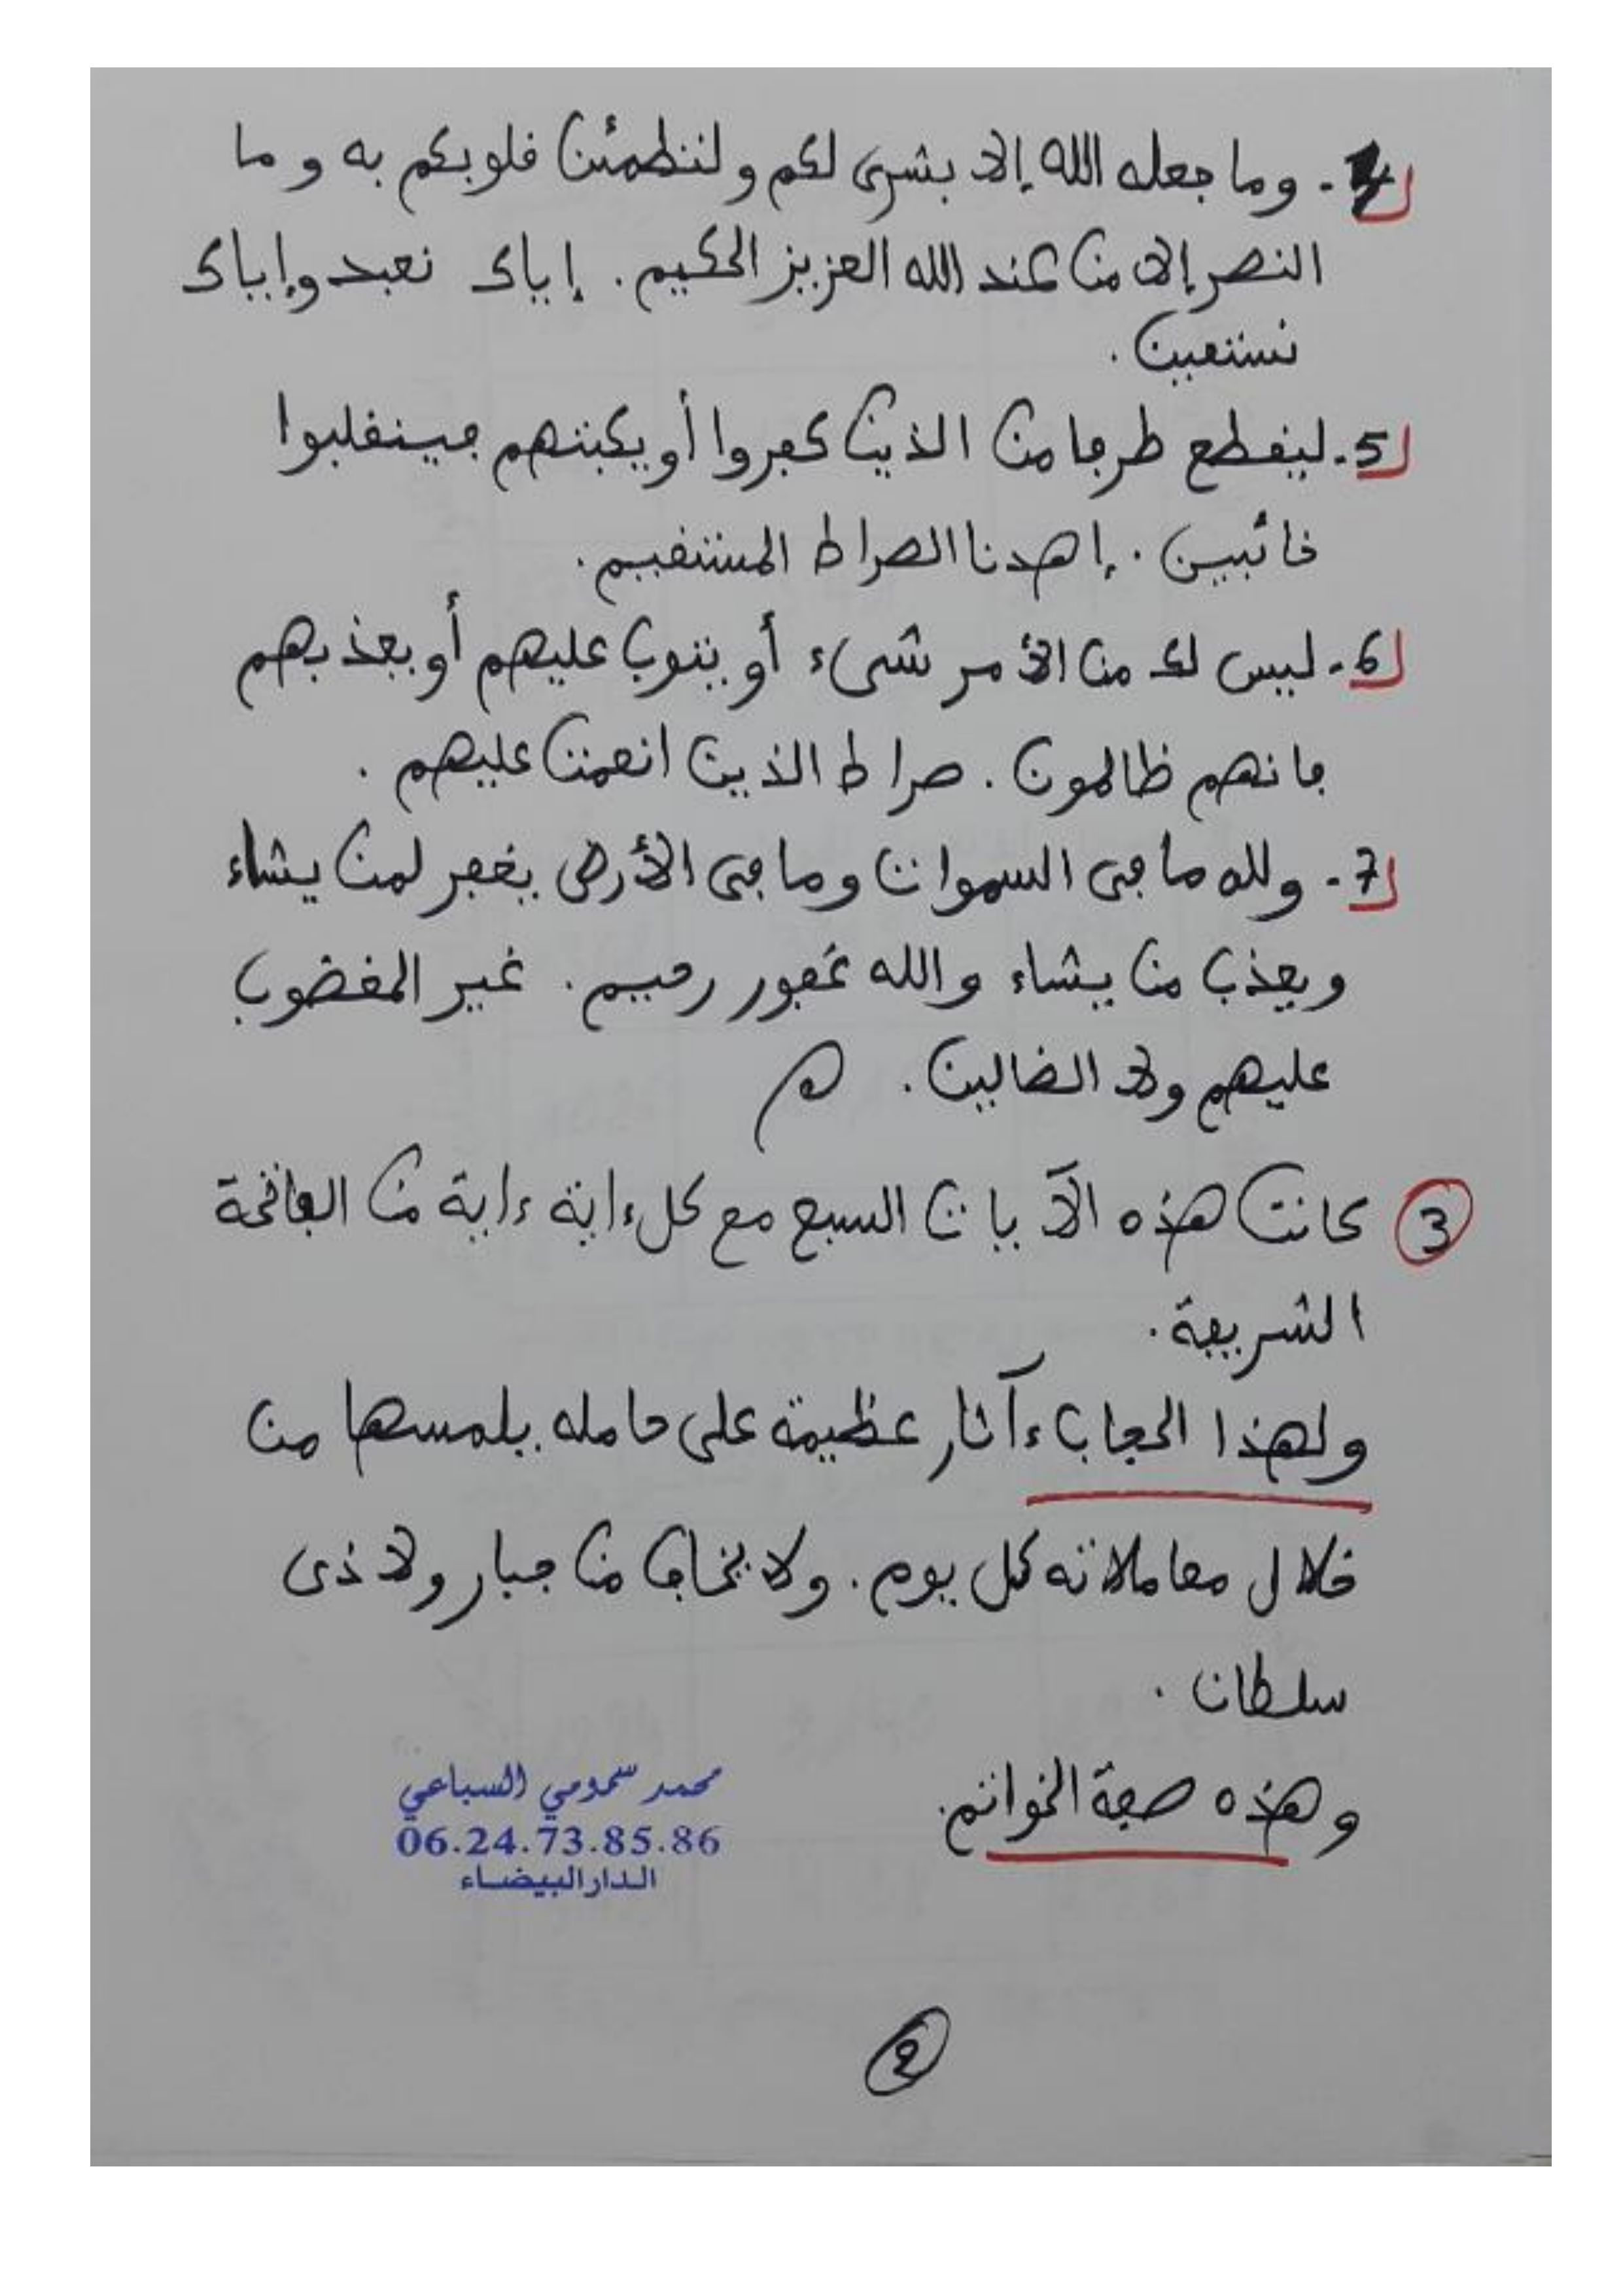 4. وما جعله الله إلا بشرى لكم ولتطمئن قلوبكم به وما
النصر إلا من عند الله العزيز الحكيم. إياك نعبد وإياك
نستعين.
5. ليقطع طرفا من الذين كفروا أو يكبتهم فينقلبوا
خائبين. إهدنا الصراط المستقيم.
6. ليس لك من الأمر شىء أو يتوب عليهم أو يعذبهم
فإنهم ظالمون. صراط الذين انعمت عليهم.
7. ولله ما فى السموات وما فى الأرض يغفر لمن يشاء
ويعذب من يشاء والله غفور رحيم. غير المغضوب
عليهم ولا الضالين.
3 كانت هذه الآيات السبع مع كل ءاية ءاية من الفاتحة
الشريفة.
ولهذا الحجاب ءآثار عظيمة على حامله يلمسها من
خلال معاملاته كل يوم. ولا يخاف من جبار ولا ذى
سلطان.
وهذه صفة الخواتم.
محمد سمومي السباعي
06.24.73.85.86
الدار البيضاء
2